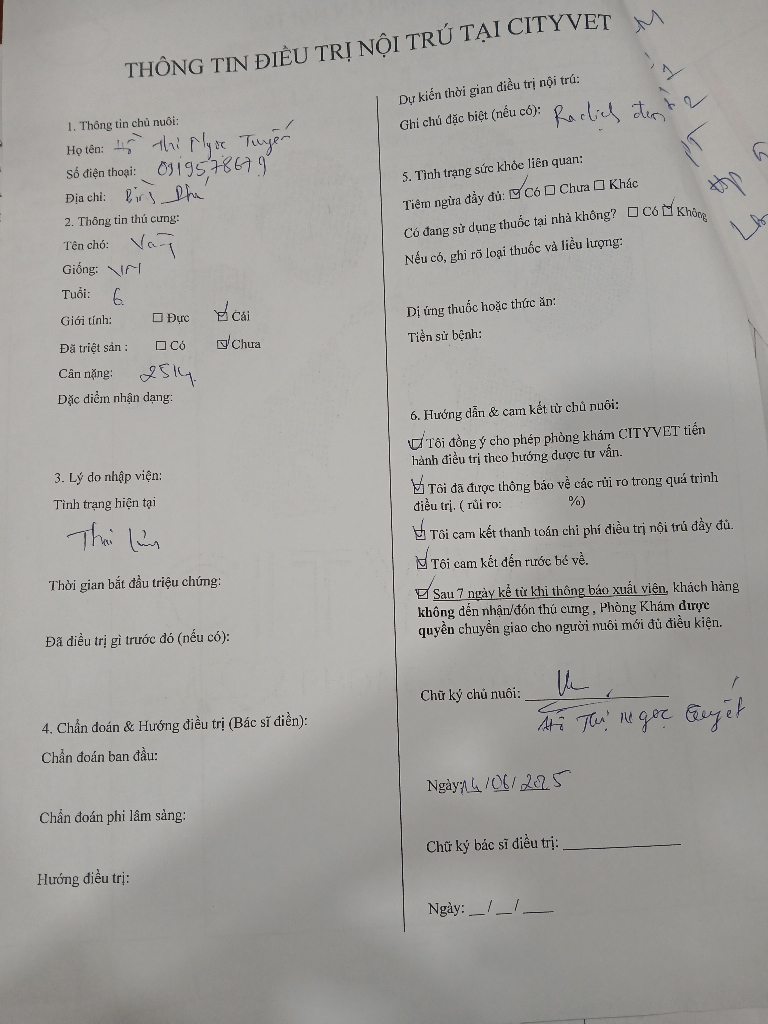 THÔNG TIN ĐIỀU TRỊ NỘI TRÚ TẠI CITYVET
1. Thông tin chủ nuôi:
Họ tên: Hồ Thị Ngọc Tuyết
Số điện thoại: 0919578679
Địa chỉ:
2. Thông tin thú cưng:
Tên chó: Vàng
Giống: VN
Tuổi: 6
Giới tính: ☐ Đực ☑ Cái
Đã triệt sản : ☐ Có ☑ Chưa
Cân nặng: 25kg.
Đặc điểm nhận dạng:
3. Lý do nhập viện:
Tình trạng hiện tại
Thai lưu
Thời gian bắt đầu triệu chứng:
Đã điều trị gì trước đó (nếu có):
4. Chẩn đoán & Hướng điều trị (Bác sĩ điền):
Chẩn đoán ban đầu:
Chẩn đoán phi lâm sàng:
Hướng điều trị:
Dự kiến thời gian điều trị nội trú:
Ghi chú đặc biệt (nếu có):
5. Tình trạng sức khỏe liên quan:
Tiêm ngừa đầy đủ: ☑ Có ☐ Chưa ☐ Khác
Có đang sử dụng thuốc tại nhà không? ☐ Có ☑ Không
Nếu có, ghi rõ loại thuốc và liều lượng:
Dị ứng thuốc hoặc thức ăn:
Tiền sử bệnh:
6. Hướng dẫn & cam kết từ chủ nuôi:
☑ Tôi đồng ý cho phép phòng khám CITYVET tiến
hành điều trị theo hướng được tư vấn.
☑ Tôi đã được thông báo về các rủi ro trong quá trình
điều trị. ( rủi ro: %)
☑ Tôi cam kết thanh toán chi phí điều trị nội trú đầy đủ.
☑ Tôi cam kết đến rước bé về.
☑ Sau 7 ngày kể từ khi thông báo xuất viện, khách hàng
không đến nhận/đón thú cưng , Phòng Khám được
quyền chuyển giao cho người nuôi mới đủ điều kiện.
Chữ ký chủ nuôi:
Hồ Thị Ngọc Tuyết
Ngày: 14/06/2025
Chữ ký bác sĩ điều trị: ____________
Ngày: __/__/____